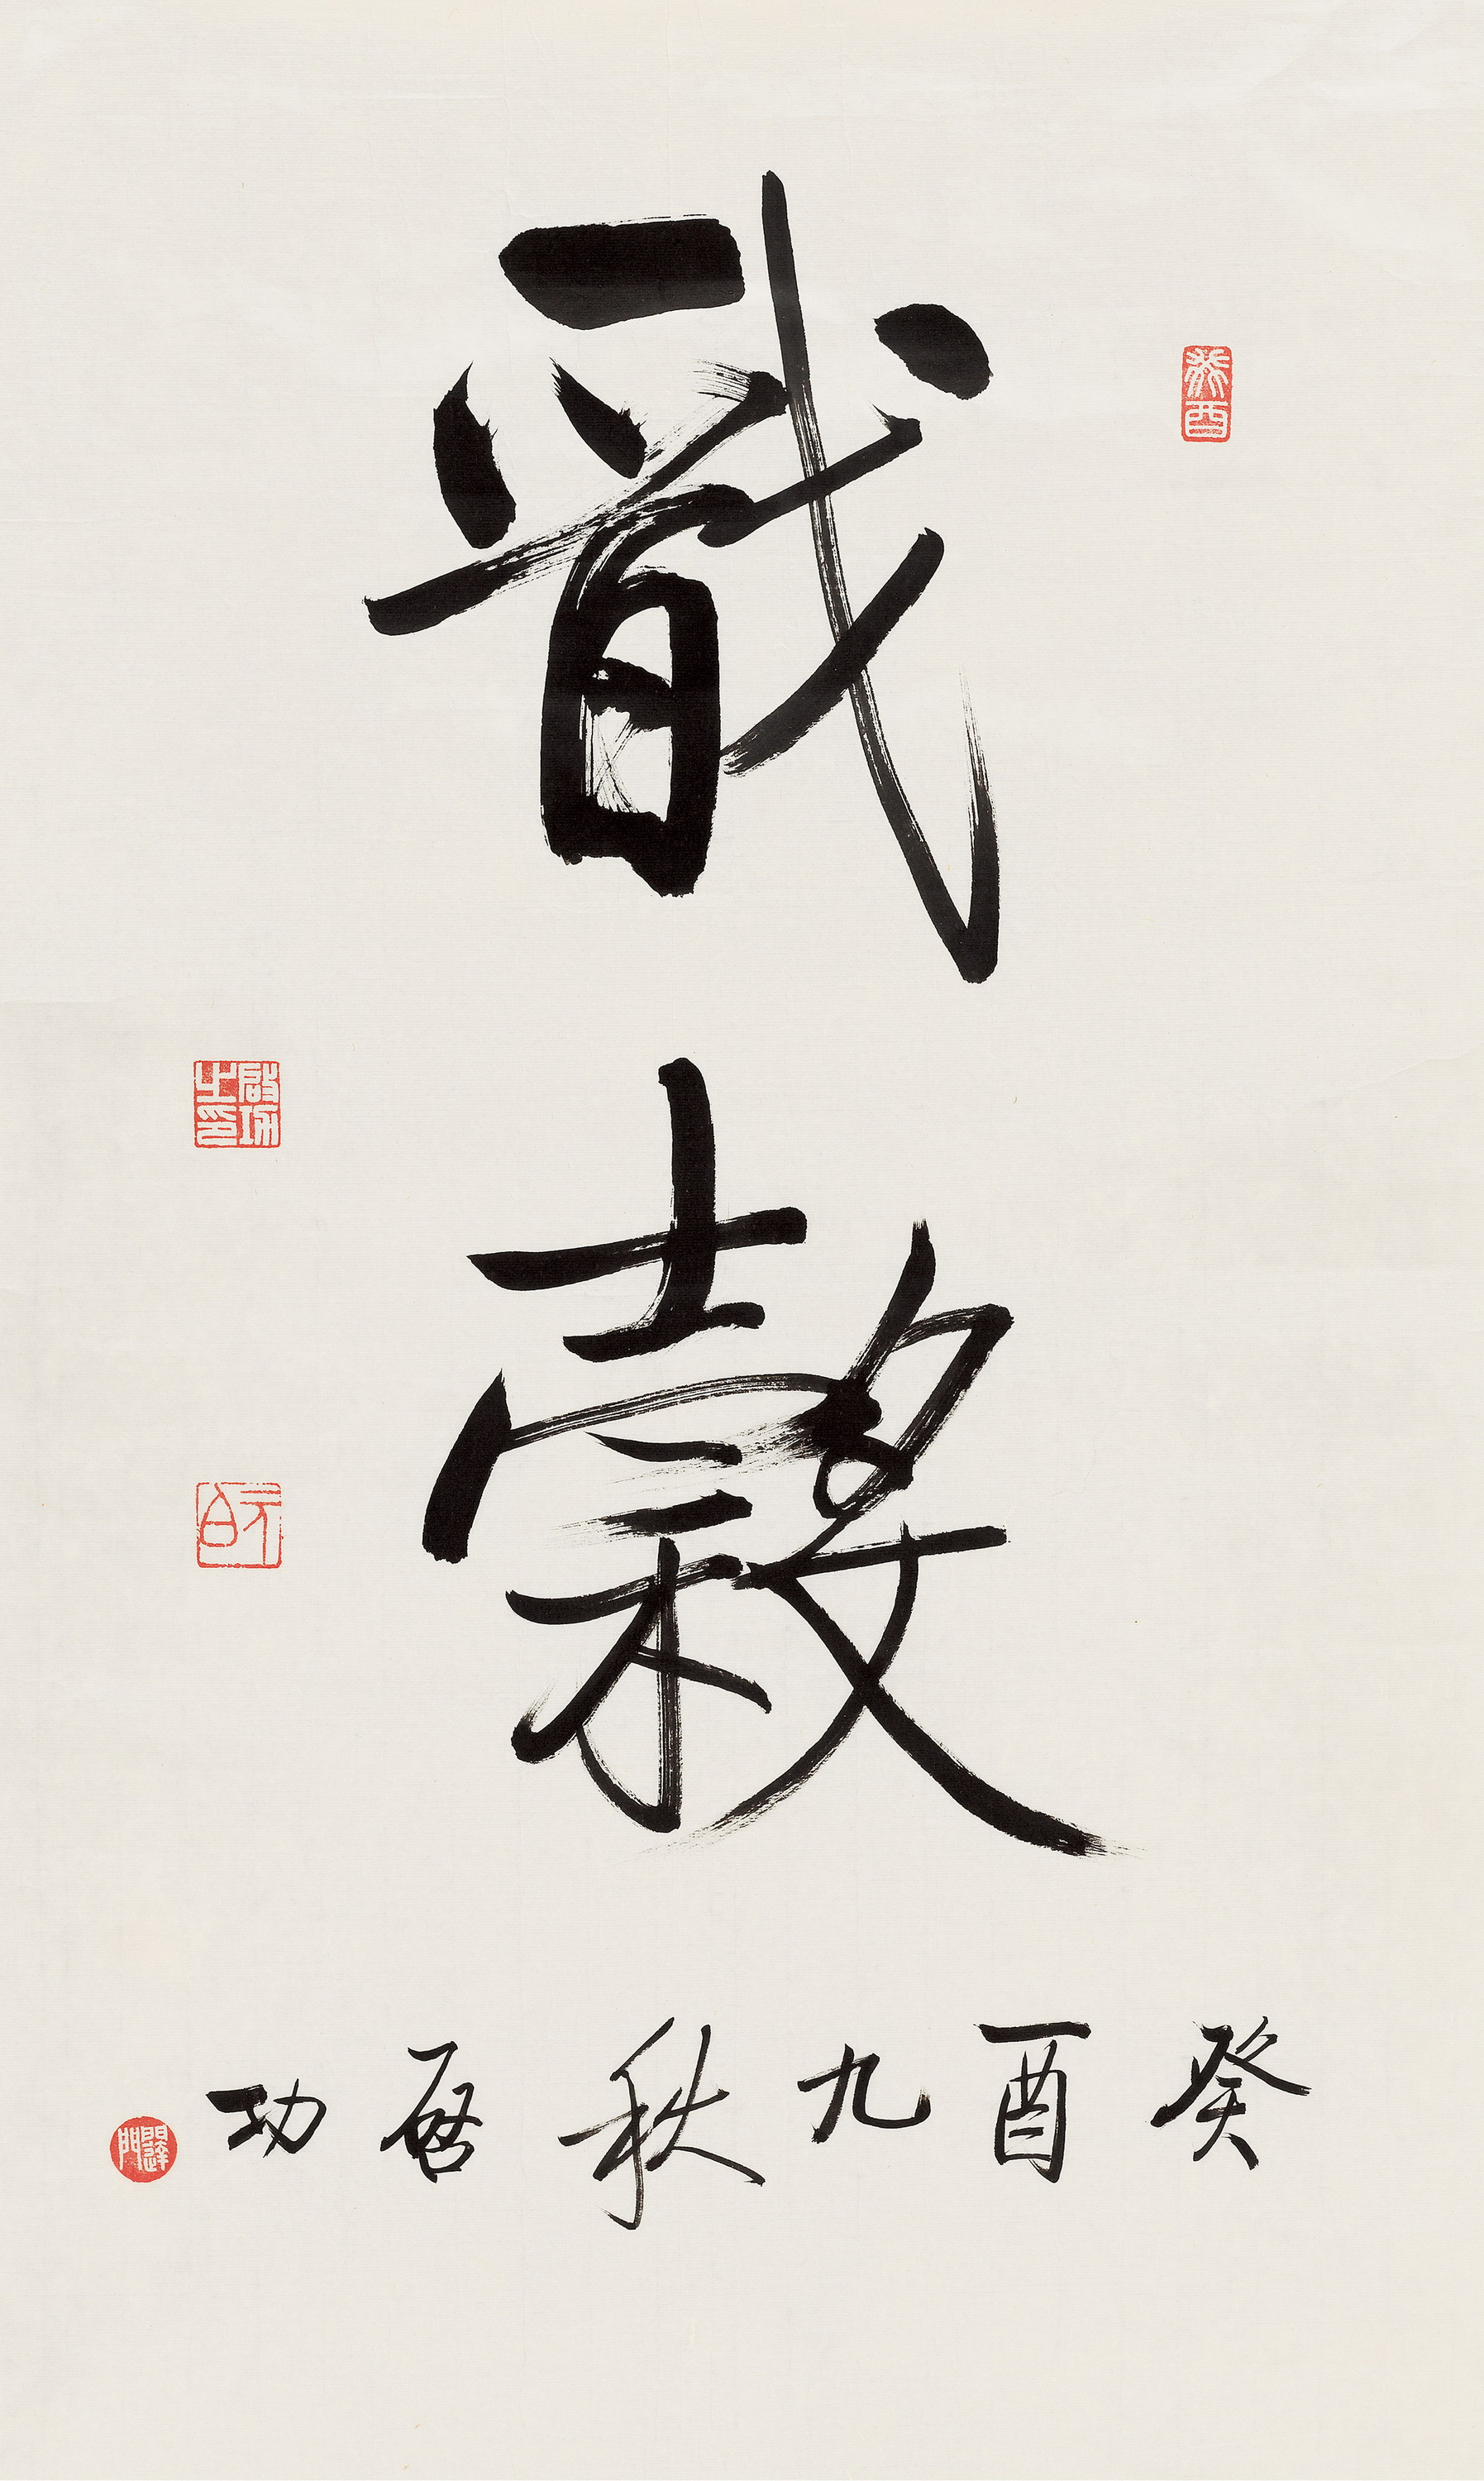 癸酉
戩穀
啟功之印
元白
癸酉九秋啟功